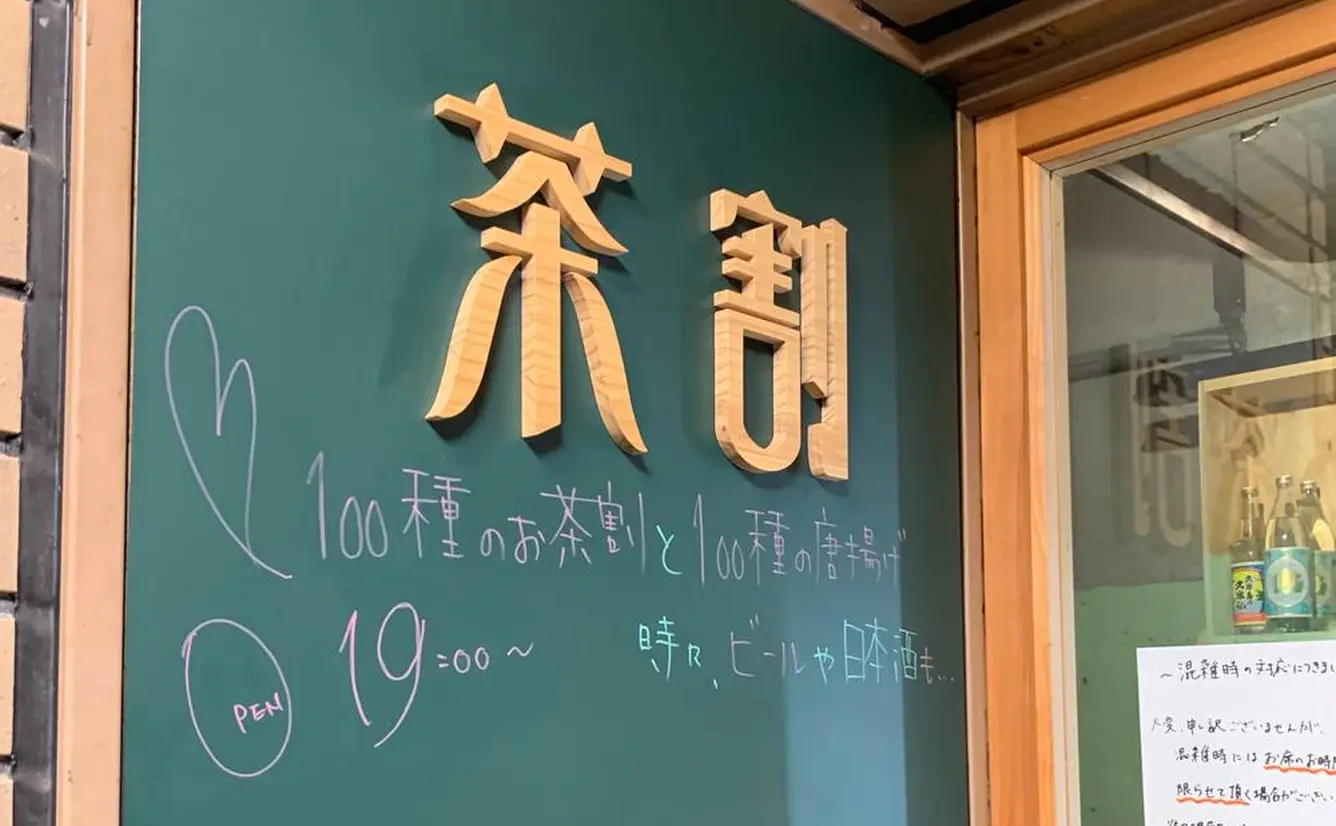 茶割
100種のお茶割と100種の唐揚げ
OPEN 19:00~
時々、ビールや日本酒も...
~混雑時の対応につきまし
大変、申し訳ございませんが、
混雑時にはお席のお時間
限らせて頂く場合がござい